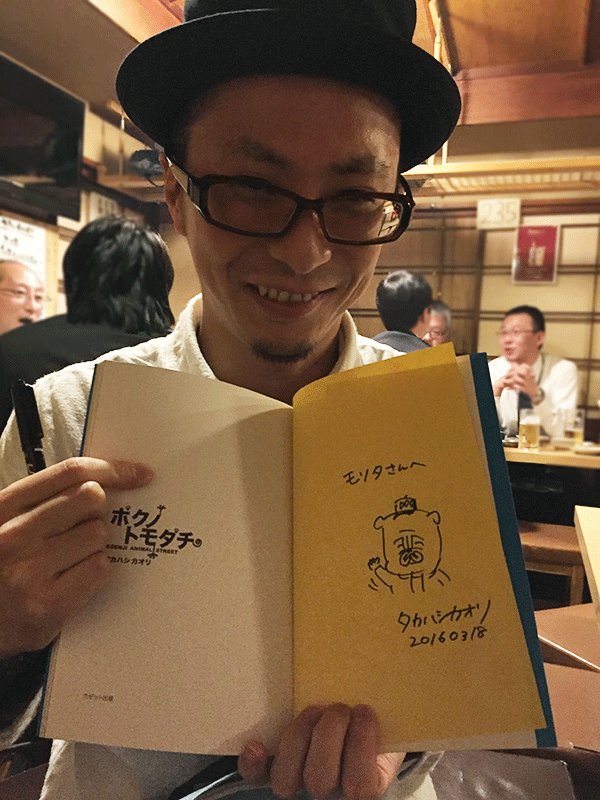 235
モリタさんへ
DOG
ボクノ
トモダチ
KOENJI ANIMAL STREET
タカハシ カオリ
タカハシカオリ
20160318
カゼット出版